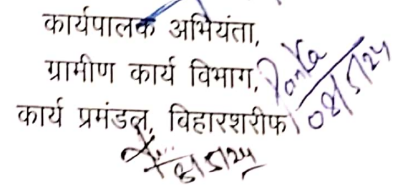 कार्यपालक अभियंता,
ग्रामीण कार्य विभाग,
कार्य प्रमंडल, विहारशरीफ।
08/5/24
8/5/24